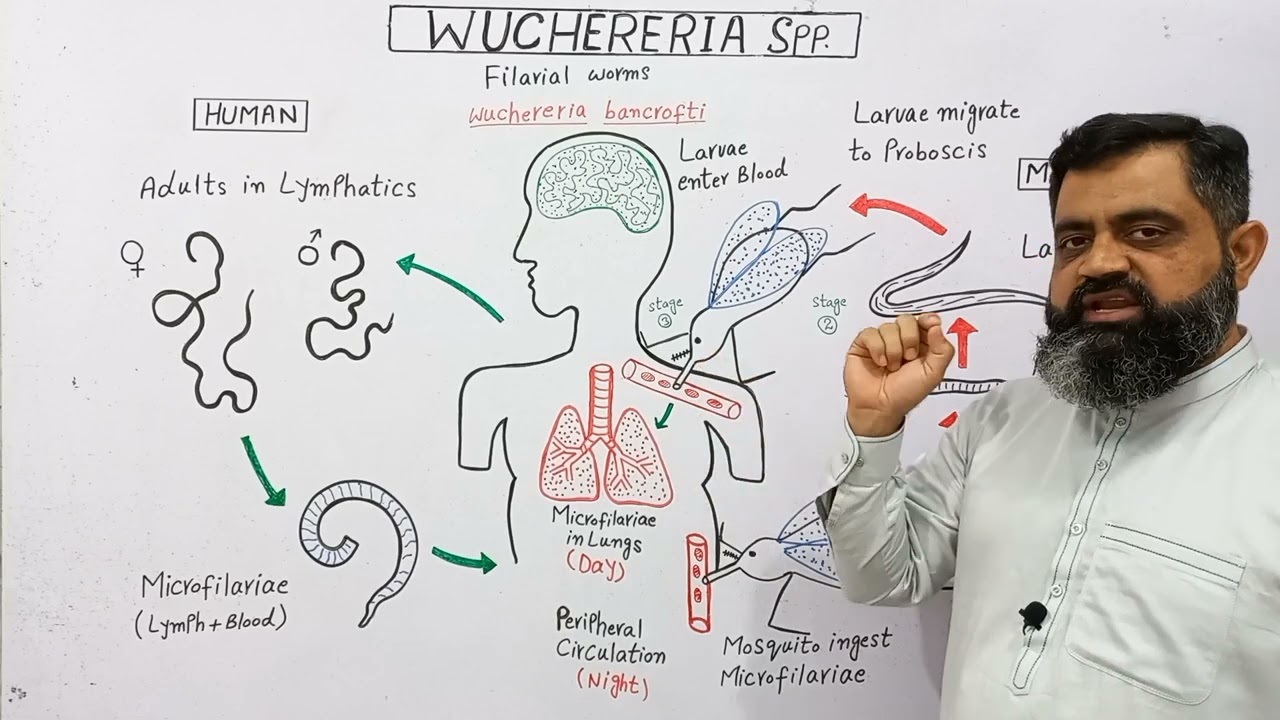 WUCHERERIA SPP.
Filarial worms
Wuchereria bancrofti
HUMAN
Adults in Lymphatics
♀
♂
Larvae
enter Blood
Larvae migrate
to Proboscis
stage
③
stage
②
Microfilariae
in Lungs
(Day)
Microfilariae
(Lymph + Blood)
Peripheral
Circulation
(Night)
Mosquito ingest
Microfilariae